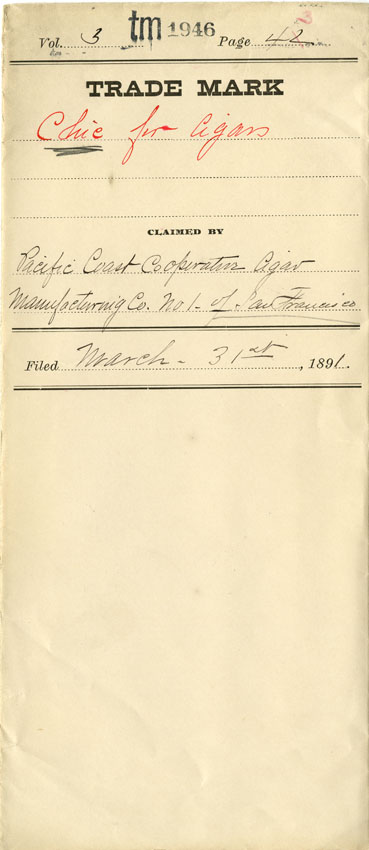 Vol. 3 tm 1946 Page 42.
TRADE MARK
Chic for Cigars
CLAIMED BY
Pacific Coast Cooperative Cigar
Manufacturing Co. No 1. of San Francisco
Filed March - 31st, 1891.